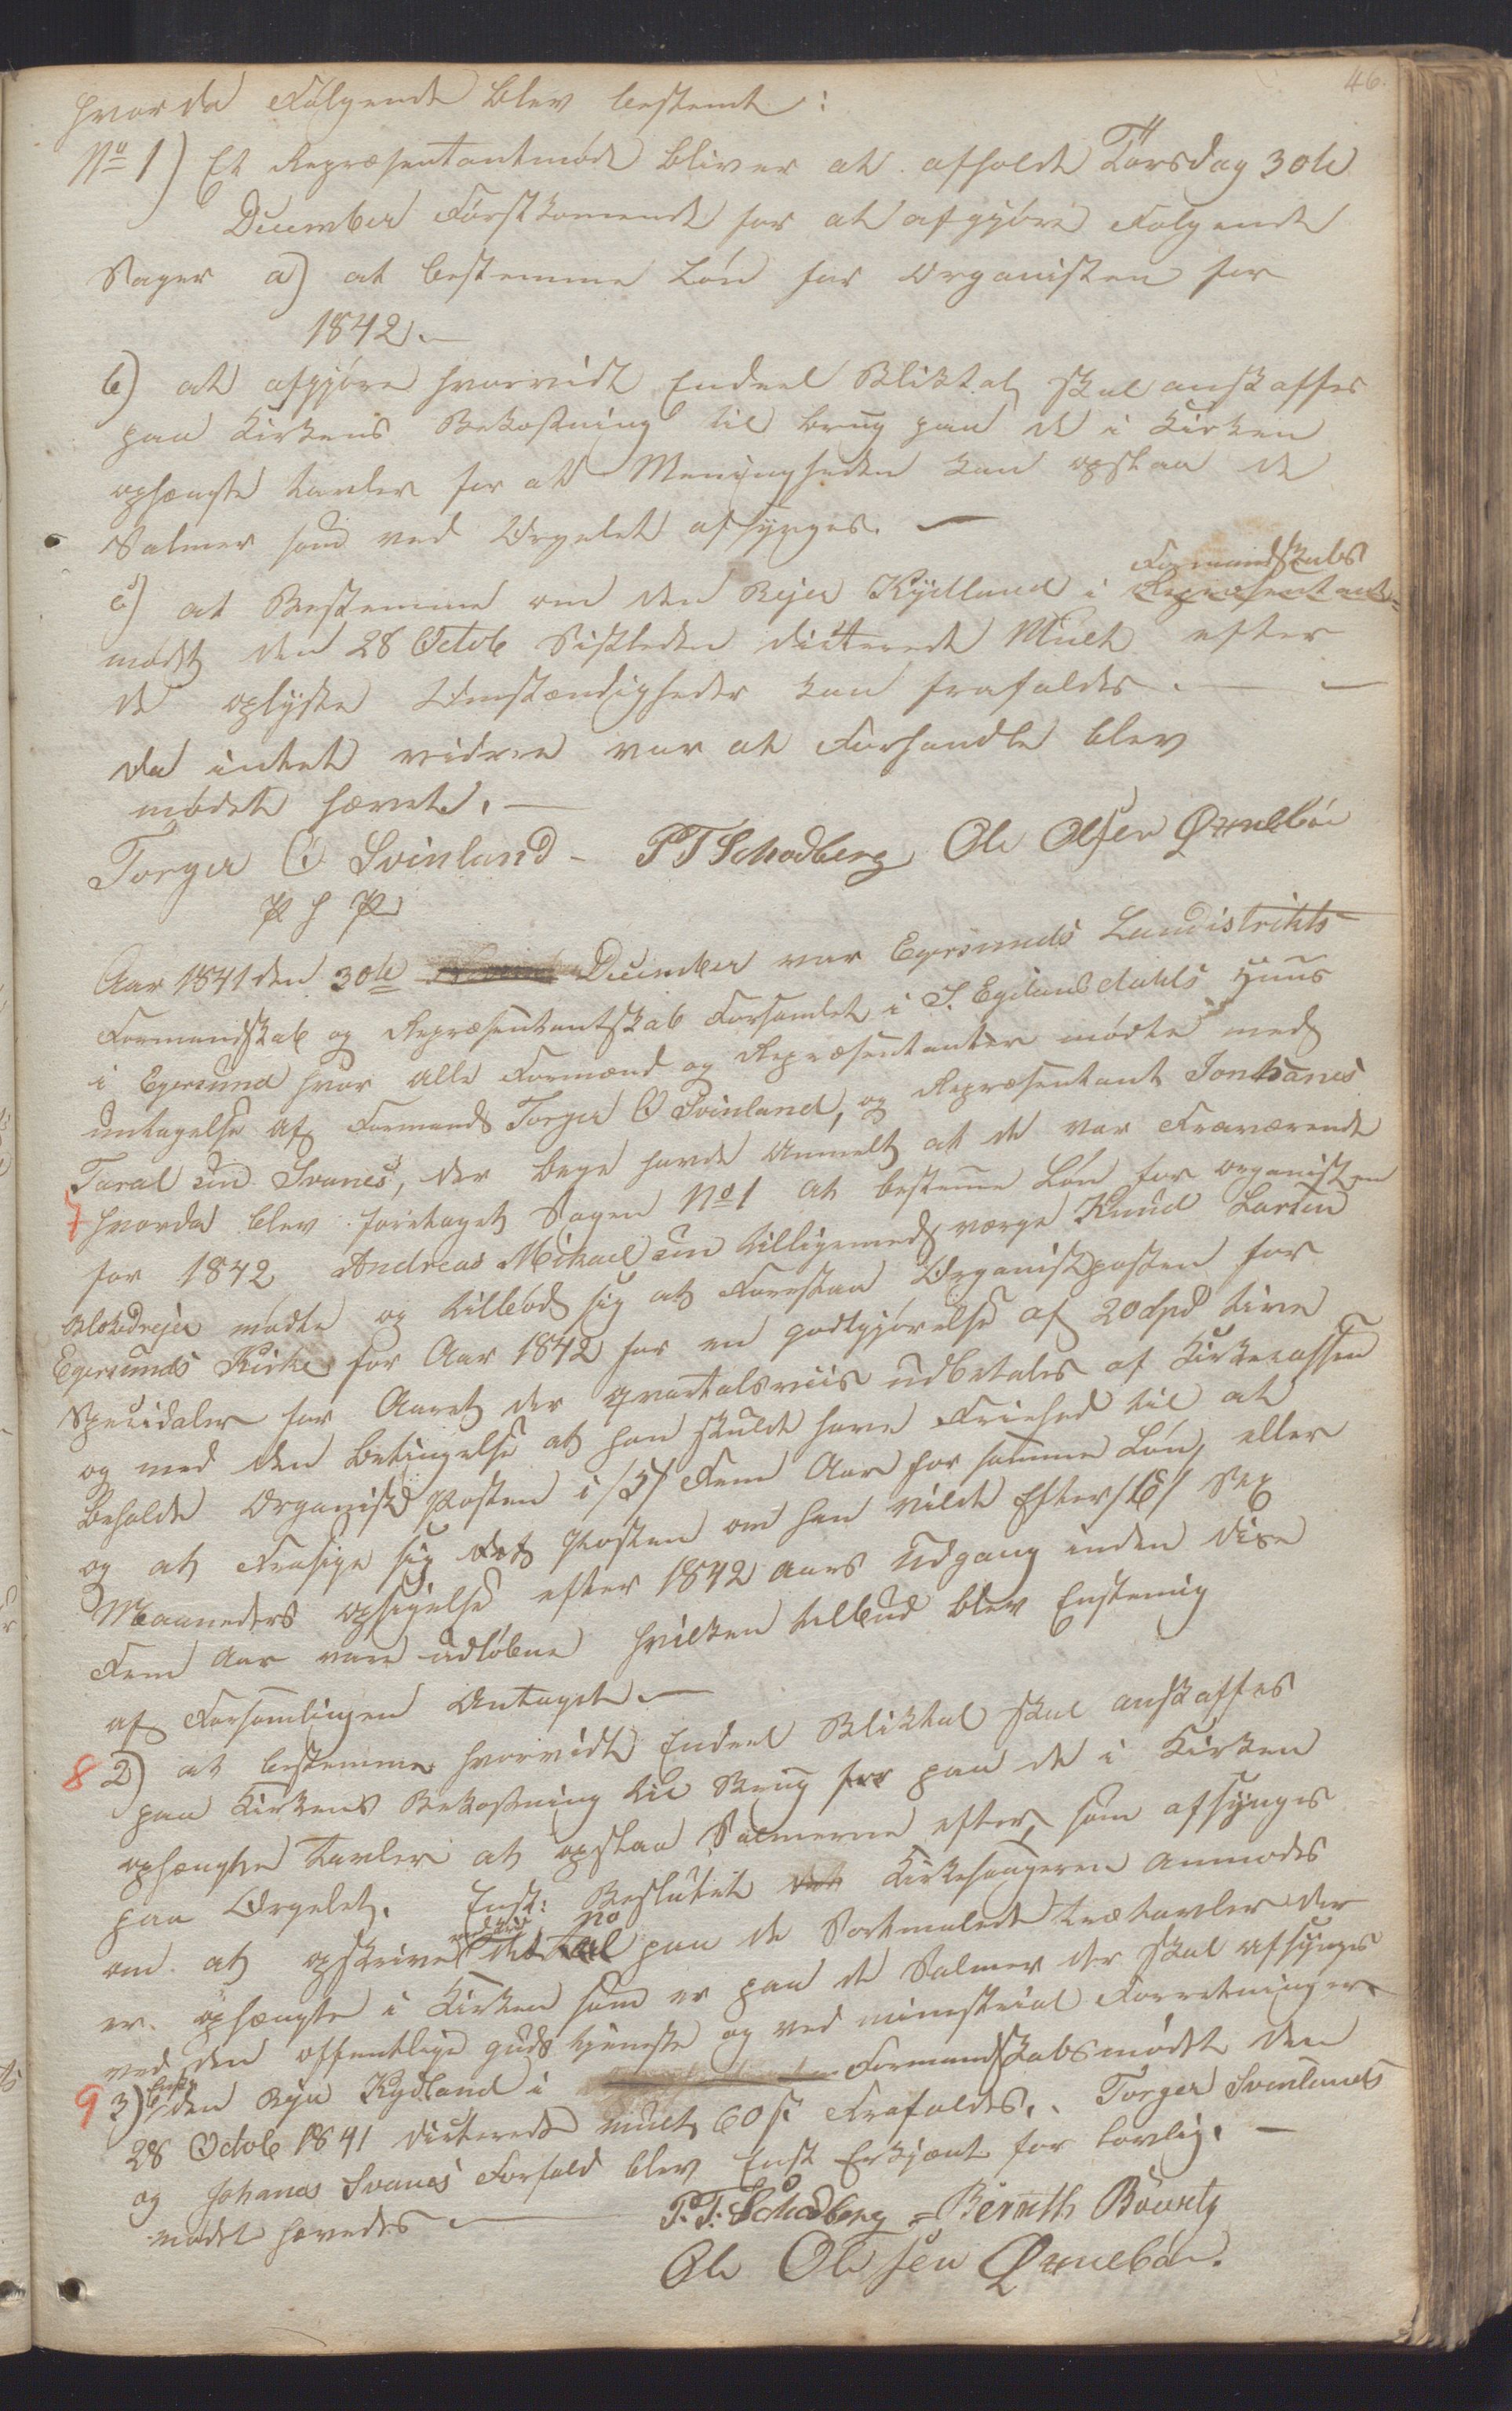 46.
hvorda Følgende blev bestemt:
No 1) Et Repræsentantmøde bliver at afholde Torsdag 30te
December Førstkomende for at afgjøre Følgende
Sager a) at bestemme Løn for Organisten for
1842. —
b) at afgjøre hvorvidt Endeel Bliktal skal anskaffes
paa Kirkens Bekostning til brug paa de i Kirken
ophængte tavler for at Meenigheden kan opslaa de
Salmer som ved Orgelet afsynges. —
Formandskabs
c) at Bestemme om den Rejer Kydland i Repræsentant-
mødet den 28 Octob Sistleden dicterede Mult efter
de oplyste Omstændigheder kan frafaldes. — —
da intet videre var at Forhandle blev
mødet hævet. —
Torger O Svinland - P T Schodberg Ole Olsen Ørneboe
Aar 1841 den 30te December var Egersunds Landistrikts
Formandskab og Repræsentantskab Forsamlet i S. Egelandsdahls Huus
i Egersund hvor alle Formænd og Repræsentanter mødte med
untagelse af Formand Torger O Svinland, og Repræsentant Johanes
Taralsen Svanes, der bege havde Anmelt at de var Fraværende
7 hvorda blev foretaget Sagen No 1 at bestemme Løn for organisten
for 1842 Andreas Mikaelsen tilligemed værge Knud Larsen
Blokdrejer mødte og tilbød sig at Forestaa Organistposten for
Egersunds Kirke for Aar 1842 for en godtgjørelse af 20 Spd tive
Specidaler for Aaret der qvartalsviis udbetales af Kirkecassen
og med den betingelse at han skulde have Friehed til at
beholde Organist Posten i /5/ Fem Aar for samme Løn, eller
og at Frasige sig Posten om han vilde Efter /6/ Sex
Maaneders opsigelse efter 1842 Aars Udgang inden dise
Fem Aar vare udløbne hvilken tilbud blev Enstemig
af Forsamlingen Antaget. —
8 2) at bestemme hvorvidt Endeel Bliktal skal anskaffes
paa Kirkens Bekostning til Brug for paa de i Kirken
ophængte tavler at opslaa Salmerne efter, som afsynges
paa Orgelet. Enst: Besluttet Kirkesangeren anmodes
No
om at opskrive Tal paa de Sortmalede trætavler der
er ophængte i Kirken som er paa de Salmer der skal afsynges
ved den offentlige guds tjeneste og ved ministrial Forretninger
9 3) den Rejer Kydland i Formandskabsmødet den
28 Octob 1841 dicterede mult 60 s Frafaldes. Torger Svinlands
og Johanes Svanes Forfald blev Enst Erkjænt for lovlig. —
mødet hævedes —
P. T. Schodberg = Bernth Böwitz
Ole Olsen Ørneboe.